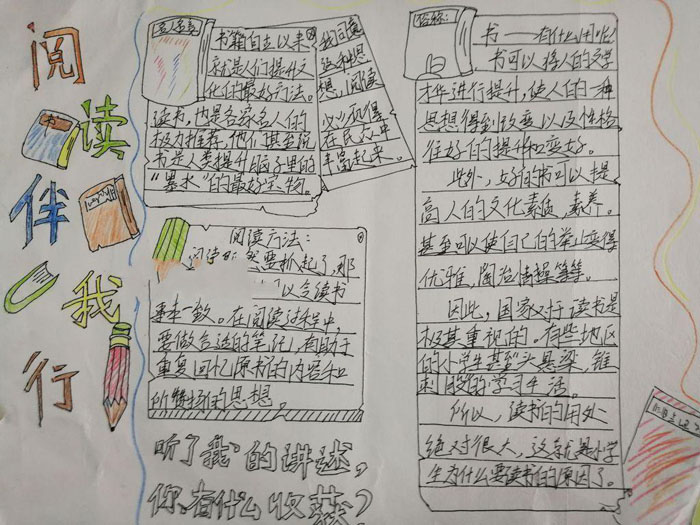 阅
读
伴
我
行
书
名人名言
书籍自古以来
就是人们提升文
化的最好方法。
读书,也是各家名人的
极力推荐,他们甚至说
书是人类提升脑子里的
“墨水”的最好宝物。
我同意
这种思
想,阅读
必以取得
在民众中
丰富起来。
阅读方法:
阅读 然要抓起了,那
以令读书
事半一数。在阅读过程中,
要做合适的笔记,有助于
重复回忆原书的内容和
所 的思想。
听了我的讲述,
你有什么收获?
总结:
书——有什么用呢?
书可以将人的文学
才华进行提升,使人的一种
思想得到改变以及性格
往好的提升和变好。
此外,好的书可以提
高人的文化素质、素养。
甚至可以使自己的举止变得
优雅,陶冶情操等等。
因此,国家对于读书是
极其重视的。有些地区
的小学生甚至“头悬梁,锥
刺股”的学习生活。
所以,读书的用处
绝对很大,这就是小学
生为什么要读书的原因了。